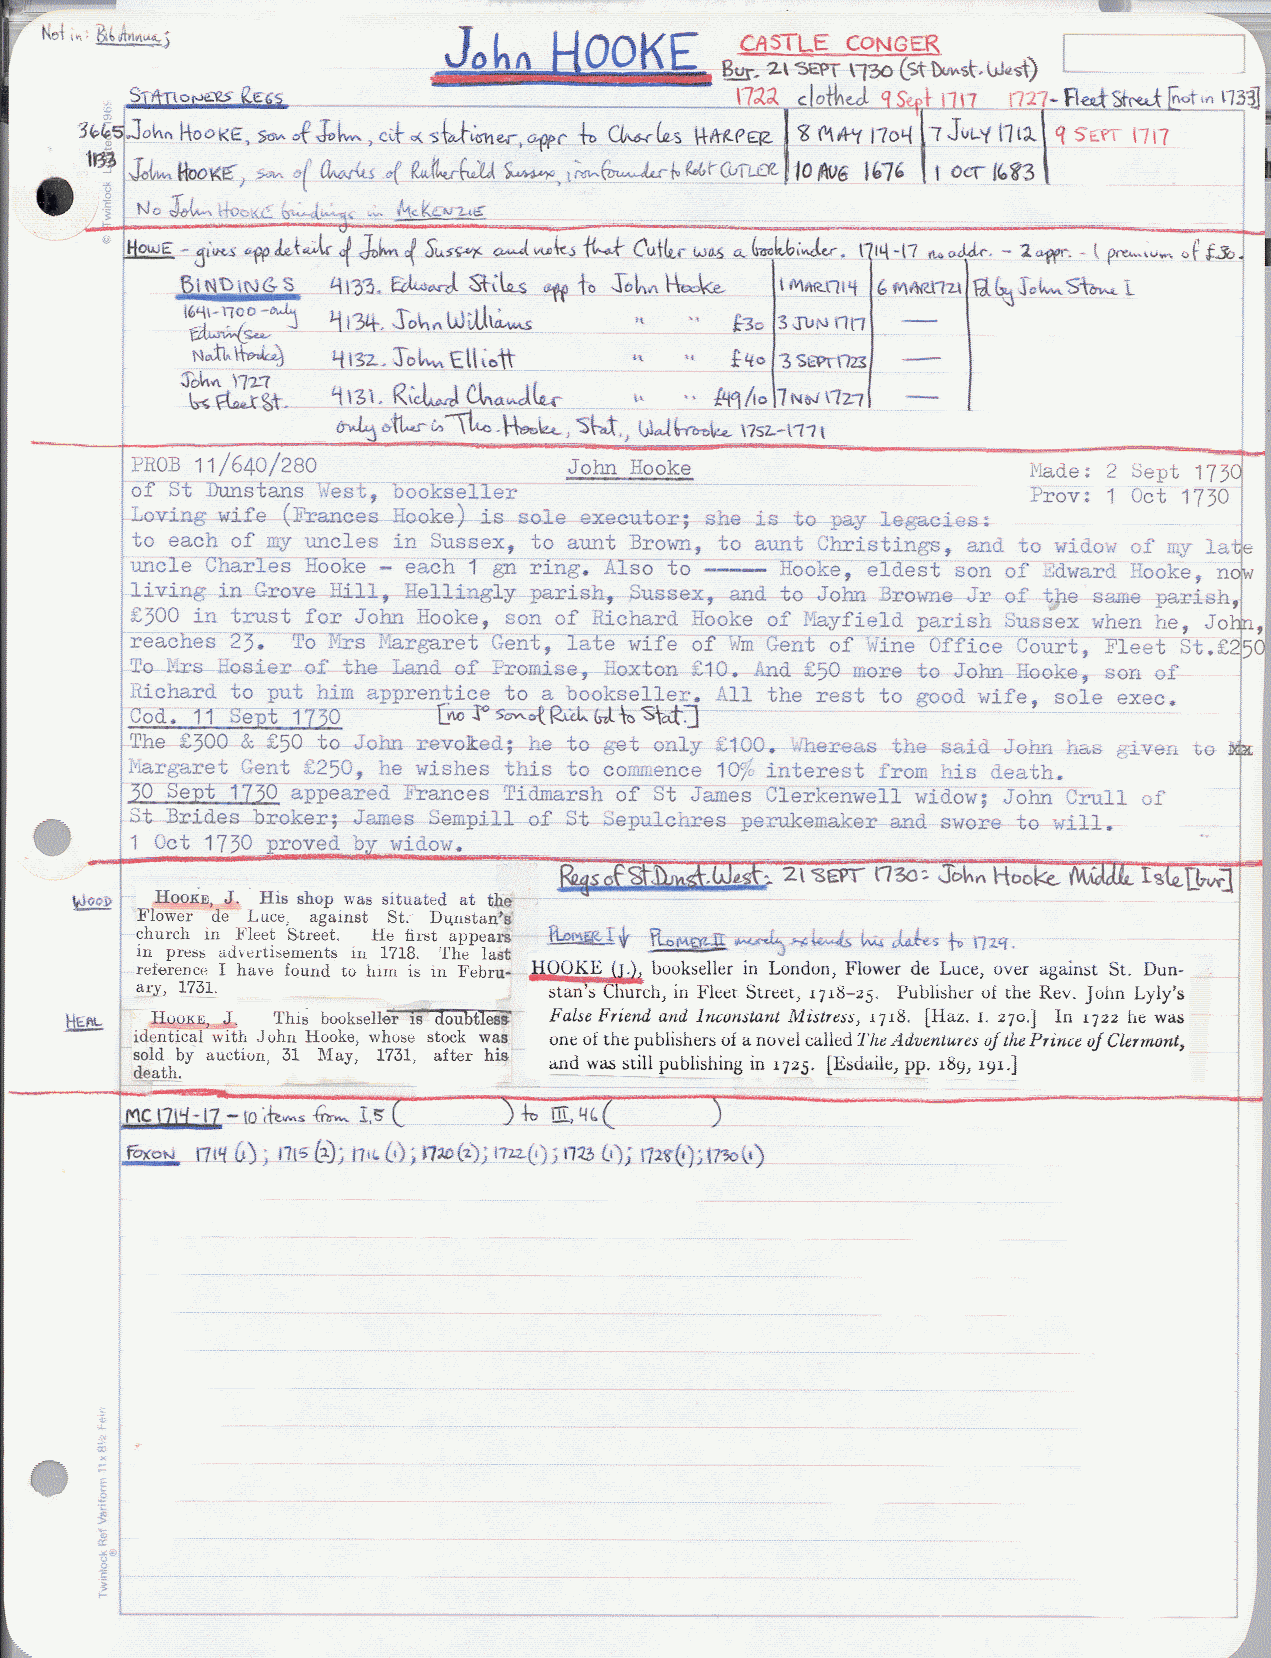 Not in: Bib Annua;
John HOOKE
CASTLE CONGER
Bur. 21 SEPT 1730 (St Dunst. West)
STATIONERS REGS
1722 clothed 9 Sept 1717 1727- Fleet Street [not in 1733]
3665 John HOOKE, son of John, cit & stationer, appr to Charles HARPER 8 MAY 1704 7 JULY 1712 9 SEPT 1717
1133 John HOOKE, son of Charles of Rutherfield Sussex, ironfounder to Robt CUTLER 10 AUG 1676 1 OCT 1683
No John HOOKE bindings in McKENZIE
HOWE - gives app details of John of Sussex and notes that Cutler was a bookbinder. 1714-17 no addr. - 2 appr. - 1 premium of £30.
BINDINGS 4133. Edward Stiles app to John Hooke 1 MAR 1714 6 MAR 1721 Fd by John Stone I
1641-1700 - only
Edwin (see
Nath Hooke)
4134. John Williams " " £30 3 JUN 1717 —
4132. John Elliott " " £40 3 SEPT 1723 —
John 1727
bs Fleet St.
4131. Richard Chandler " " £49/10 7 NOV 1727 —
only other is Tho. Hooke, Stat., Walbrooke 1752-1771
PROB 11/640/280 John Hooke Made: 2 Sept 1730
of St Dunstans West, bookseller Prov: 1 Oct 1730
Loving wife (Frances Hooke) is sole executor; she is to pay legacies:
to each of my uncles in Sussex, to aunt Brown, to aunt Christings, and to widow of my late
uncle Charles Hooke - each 1 gn ring. Also to ——— Hooke, eldest son of Edward Hooke, now
living in Grove Hill, Hellingly parish, Sussex, and to John Browne Jr of the same parish,
£300 in trust for John Hooke, son of Richard Hooke of Mayfield parish Sussex when he, John,
reaches 23. To Mrs Margaret Gent, late wife of Wm Gent of Wine Office Court, Fleet St.£250
To Mrs Hosier of the Land of Promise, Hoxton £10. And £50 more to John Hooke, son of
Richard to put him apprentice to a bookseller. All the rest to good wife, sole exec.
Cod. 11 Sept 1730 [no Jo son of Rich bd to Stat.]
The £300 & £50 to John revoked; he to get only £100. Whereas the said John has given to
Margaret Gent £250, he wishes this to commence 10% interest from his death.
30 Sept 1730 appeared Frances Tidmarsh of St James Clerkenwell widow; John Crull of
St Brides broker; James Sempill of St Sepulchres perukemaker and swore to will.
1 Oct 1730 proved by widow.
Regs of St Dunst. West: 21 SEPT 1730: John Hooke Middle Isle [bur]
WOOD
HOOKE, J. His shop was situated at the
Flower de Luce, against St. Dunstan's
church in Fleet Street. He first appears
in press advertisements in 1718. The last
reference I have found to him is in Febru-
ary, 1731.
HEAL
HOOKE, J. This bookseller is doubtless
identical with John Hooke, whose stock was
sold by auction, 31 May, 1731, after his
death.
PLOMER I ↓ PLOMER II merely extends his dates to 1729.
HOOKE (J.), bookseller in London, Flower de Luce, over against St. Dun-
stan's Church, in Fleet Street, 1718-25. Publisher of the Rev. John Lyly's
False Friend and Inconstant Mistress, 1718. [Haz. I. 270.] In 1722 he was
one of the publishers of a novel called The Adventures of the Prince of Clermont,
and was still publishing in 1725. [Esdaile, pp. 189, 191.]
MC 1714-17 - 10 items from I,5 ( ) to III, 46 ( )
FOXON 1714 (1); 1715 (2); 1716 (1); 1720 (2); 1722 (1); 1723 (1); 1728 (1); 1730 (1)
Twinlock Ref Variform 11 x 8½ Feint